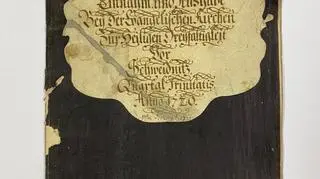 Einnahm und Ausgabe
Beÿ der Evangelischen Kirchen
Zur Heiligen Dreÿfaltigkeit
Vor
Schweidnitz
Quartal Trinitatis
Anno 1720.